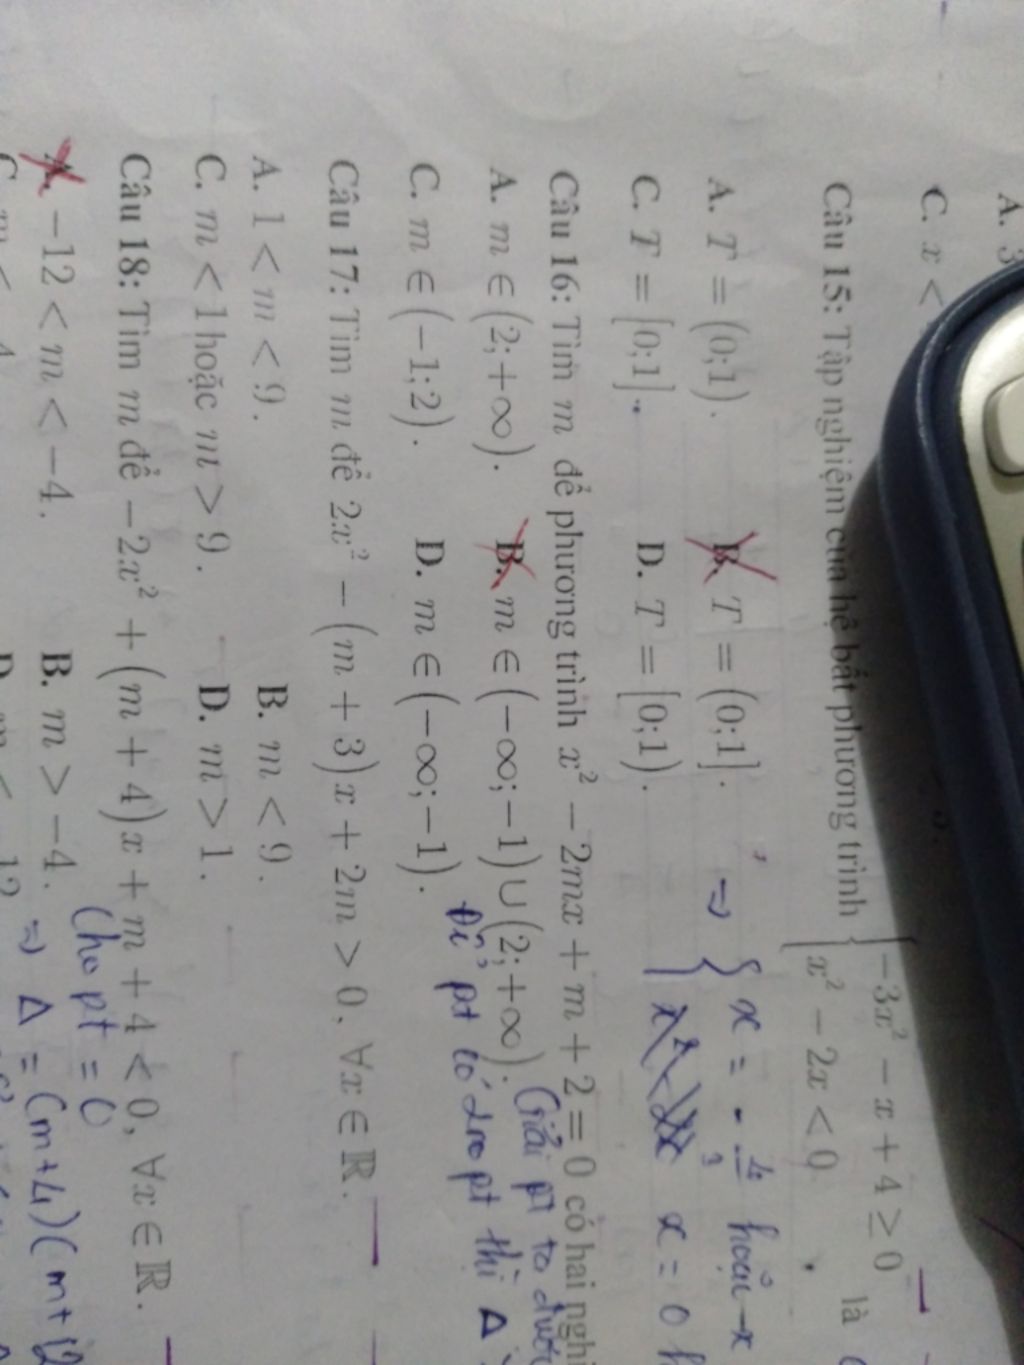 A. 3
C. x <
Câu 15: Tập nghiệm của hệ bất phương trình { -3x² - x + 4 ≥ 0
x² - 2x < 0 là
A. T = (0;1).
B. T = (0;1].
⇒ { x = - 4/3 hoặc x
C. T = [0;1].
D. T = [0;1).
x = 0 h
Câu 16: Tìm m để phương trình x² - 2mx + m + 2 = 0 có hai nghi
A. m ∈ (2;+∞).
B. m ∈ (-∞;-1) ∪ (2;+∞). (Giải pt ta được
C. m ∈ (-1;2).
D. m ∈ (-∞;-1). Để pt có 2 no pt thì Δ >
Câu 17: Tìm m để 2x² - (m + 3)x + 2m > 0, ∀x ∈ ℝ.
A. 1 < m < 9.
B. m < 9.
C. m < 1 hoặc m > 9.
D. m > 1.
Câu 18: Tìm m để -2x² + (m + 4)x + m + 4 < 0, ∀x ∈ ℝ.
(cho pt = 0
A. -12 < m < -4.
B. m > -4. ⇒ Δ = (m+4)(m+12